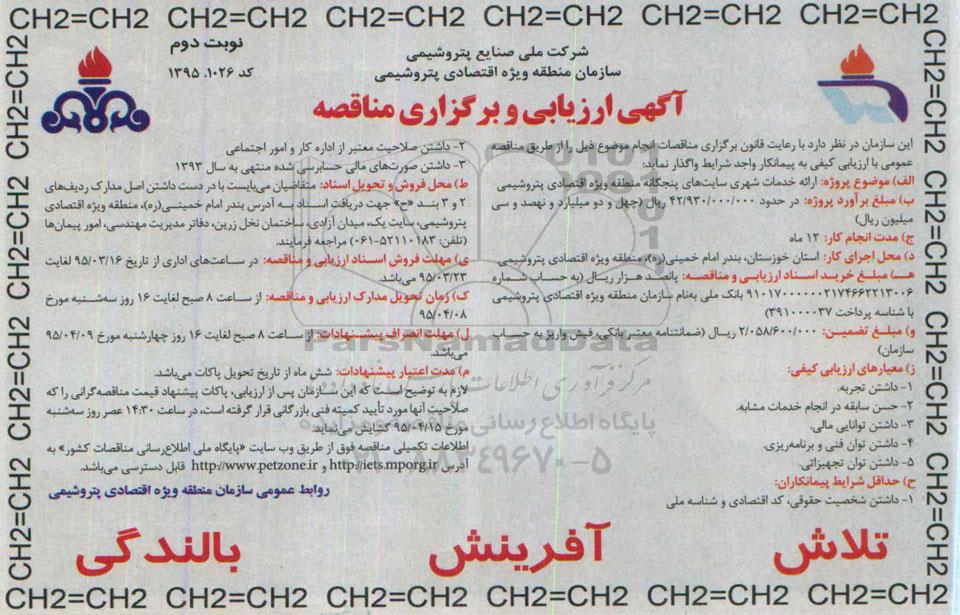 CH2=CH2 CH2=CH2 CH2=CH2 CH2=CH2 CH2=CH2 CH2=CH2
نوبت دوم
کد ۱۰۲۶، ۱۳۹۵
شرکت ملی صنایع پتروشیمی
سازمان منطقه ویژه اقتصادی پتروشیمی
آگهی ارزیابی و برگزاری مناقصه
این سازمان در نظر دارد با رعایت قانون برگزاری مناقصات انجام موضوع ذیل را از طریق مناقصه
عمومی با ارزیابی کیفی به پیمانکار واجد شرایط واگذار نماید:
الف) موضوع پروژه: ارائه خدمات شهری سایت‌های پنجگانه منطقه ویژه اقتصادی پتروشیمی
ب) مبلغ برآورد پروژه: در حدود ۴۲/۹۳۰/۰۰۰/۰۰۰ ریال (چهل و دو میلیارد و نهصد و سی
میلیون ریال)
ج) مدت انجام کار: ۱۲ ماه
د) محل اجرای کار: استان خوزستان، بندر امام خمینی(ره)، منطقه ویژه اقتصادی پتروشیمی
هـ) مبلغ خرید اسناد ارزیابی و مناقصه: پانصد هزار ریال (به حساب شماره
۹۱۰۱۷۰۰۰۰۰۰۲۱۷۴۶۶۲۲۱۳۰۰۶ بانک ملی به‌نام سازمان منطقه ویژه اقتصادی پتروشیمی
با شناسه پرداخت ۳۹۱۰۰۰۰۳۷)
و) مبلغ تضمین: ۲/۰۵۸/۶۰۰/۰۰۰ ریال (ضمانتنامه معتبر بانکی، فیش واریز به حساب
سازمان)
ز) معیارهای ارزیابی کیفی:
۱- داشتن تجربه.
۲- حسن سابقه در انجام خدمات مشابه.
۳- داشتن توانایی مالی.
۴- داشتن توان فنی و برنامه‌ریزی.
۵- داشتن توان تجهیزاتی.
ح) حداقل شرایط پیمانکاران:
۱- داشتن شخصیت حقوقی، کد اقتصادی و شناسه ملی
۲- داشتن صلاحیت معتبر از اداره کار و امور اجتماعی
۳- داشتن صورت‌های مالی حسابرسی شده منتهی به سال ۱۳۹۳
ط) محل فروش و تحویل اسناد: متقاضیان می‌بایست با در دست داشتن اصل مدارک ردیف‌های
۲ و ۳ بند «ح» جهت دریافت اسناد به آدرس بندر امام خمینی(ره)، منطقه ویژه اقتصادی
پتروشیمی، سایت یک، میدان آزادی، ساختمان نخل زرین، دفاتر مدیریت مهندسی، امور پیمان‌ها
(تلفن: ۵۲۱۱۰۱۸۳-۰۶۱) مراجعه فرمایند.
ی) مهلت فروش اسناد ارزیابی و مناقصه: در ساعت‌های اداری از تاریخ ۹۵/۰۳/۱۶ لغایت
۹۵/۰۳/۲۳ می‌باشد.
ک) زمان تحویل مدارک ارزیابی و مناقصه: از ساعت ۸ صبح لغایت ۱۶ روز سه‌شنبه مورخ
۹۵/۰۴/۰۸
ل) مهلت انصراف پیشنهادات: از ساعت ۸ صبح لغایت ۱۶ روز چهارشنبه مورخ ۹۵/۰۴/۰۹
می‌باشد.
م) مدت اعتبار پیشنهادات: شش ماه از تاریخ تحویل پاکات می‌باشد.
لازم به توضیح است که این سازمان پس از ارزیابی، پاکات پیشنهاد قیمت مناقصه‌گرانی را که
صلاحیت آنها مورد تأیید کمیته فنی بازرگانی قرار گرفته است، در ساعت ۱۴:۳۰ عصر روز سه‌شنبه
مورخ ۹۵/۰۴/۱۵ گشایش می‌نماید.
اطلاعات تکمیلی مناقصه فوق از طریق وب سایت «پایگاه ملی اطلاع‌رسانی مناقصات کشور» به
آدرس http://iets.mporg.ir و http://www.petzone.ir قابل دسترسی می‌باشد.
روابط عمومی سازمان منطقه ویژه اقتصادی پتروشیمی
ParsNamadData
پایگاه اطلاع رسانی
تلاش آفرینش بالندگی
CH2=CH2 CH2=CH2 CH2=CH2 CH2=CH2 CH2=CH2 CH2=CH2
CH2=CH2 CH2=CH2 CH2=CH2 CH2=CH2
CH2=CH2 CH2=CH2 CH2=CH2 CH2=CH2